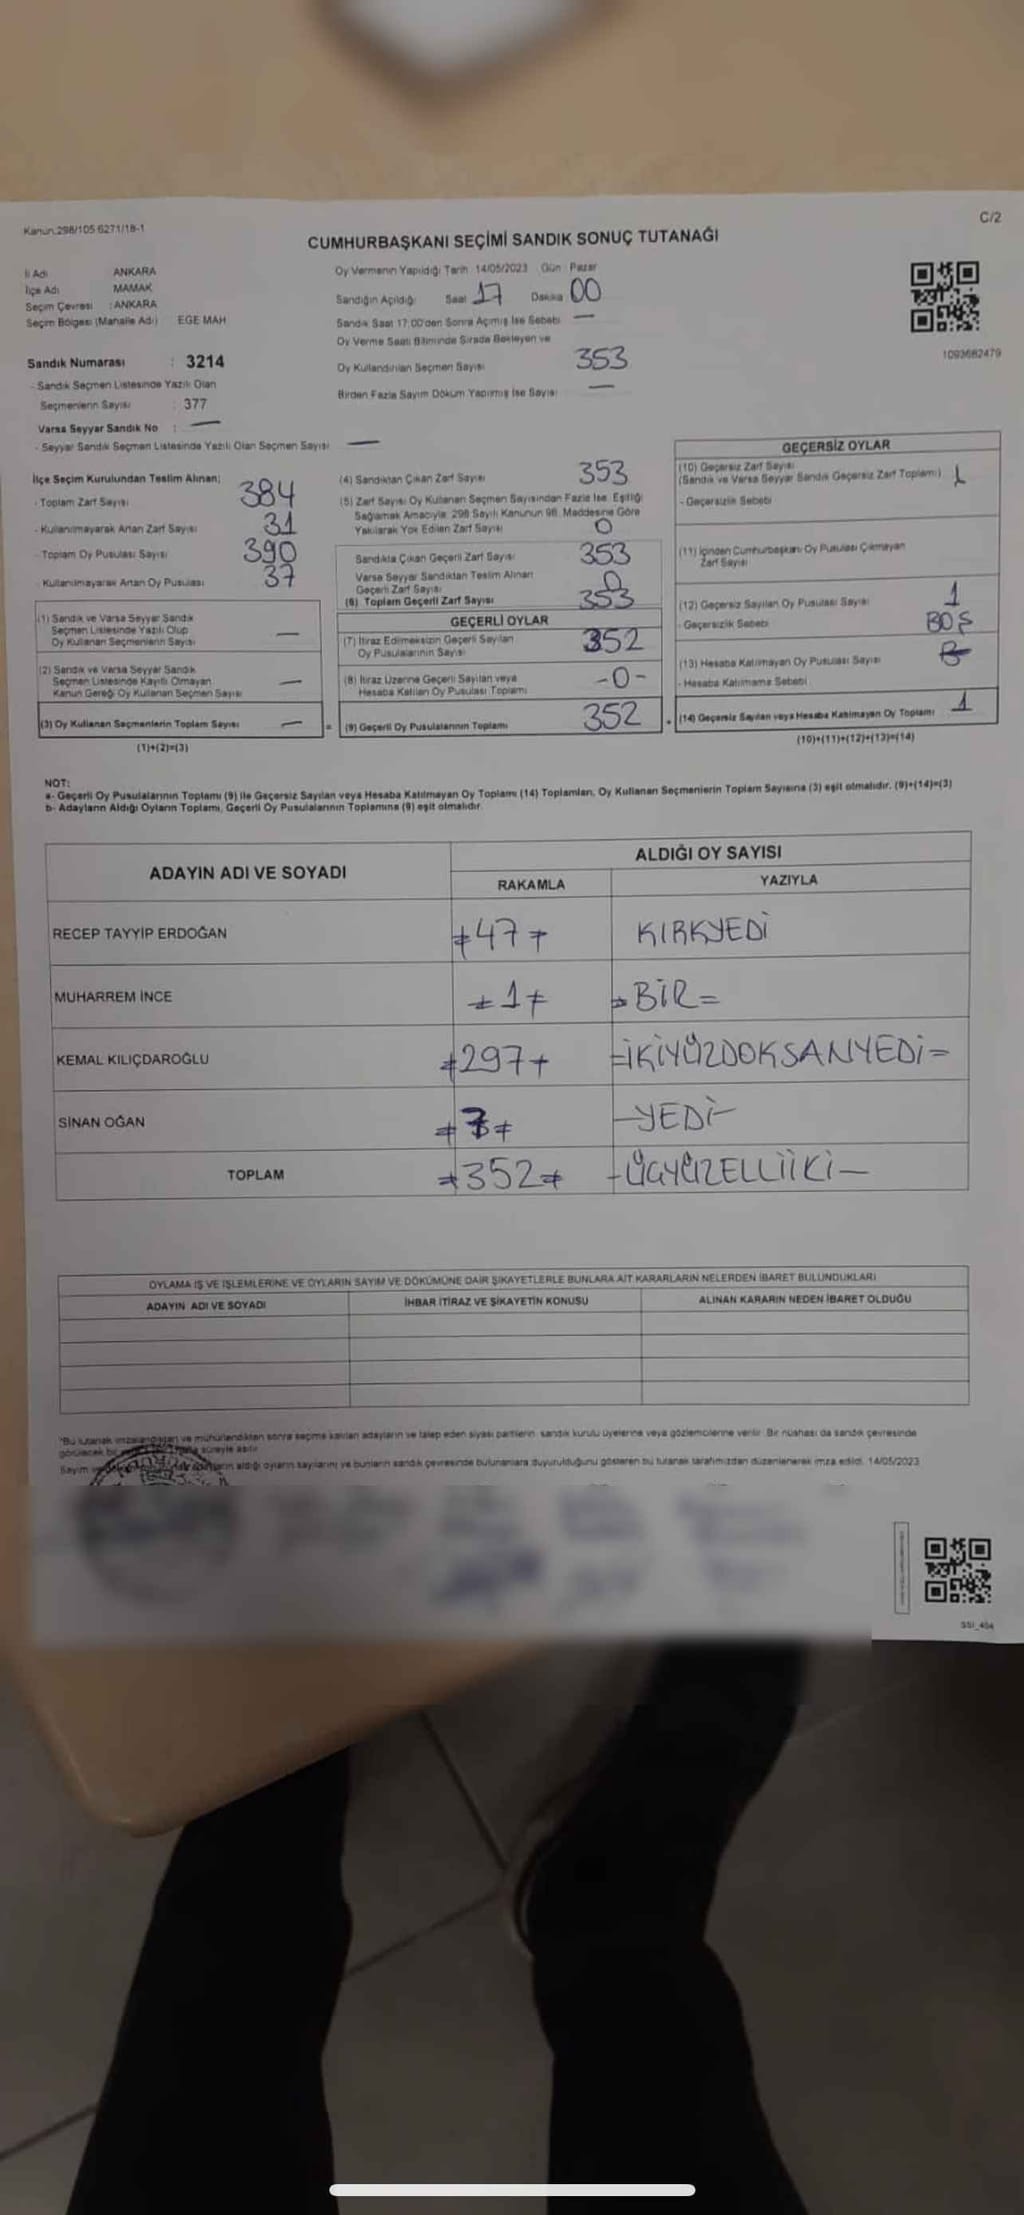 Kanun.298/105 6271/18-1
C/2
CUMHURBAŞKANI SEÇİMİ SANDIK SONUÇ TUTANAĞI
İl Adı ANKARA
İlçe Adı MAMAK
Seçim Çevresi : ANKARA
Seçim Bölgesi (Mahalle Adı) EGE MAH
Sandık Numarası : 3214
- Sandık Seçmen Listesinde Yazılı Olan
Seçmenlerin Sayısı : 377
Varsa Seyyar Sandık No : —
- Seyyar Sandık Seçmen Listesinde Yazılı Olan Seçmen Sayısı —
Oy Vermenin Yapıldığı Tarih 14/05/2023 Gün Pazar
Sandığın Açıldığı Saat 17 Dakika 00
Sandık Saat 17:00'den Sonra Açılmış İse Sebebi —
Oy Verme Saati Bitiminde Sırada Bekleyen ve
Oy Kullandırılan Seçmen Sayısı 353
Birden Fazla Sayım Döküm Yapılmış İse Sayısı —
1093682479
İlçe Seçim Kurulundan Teslim Alınan;
- Toplam Zarf Sayısı 384
- Kullanılmayarak Artan Zarf Sayısı 31
- Toplam Oy Pusulası Sayısı 390
- Kullanılmayarak Artan Oy Pusulası 37
(1) Sandık ve Varsa Seyyar Sandık
Seçmen Listesinde Yazılı Olup
Oy Kullanan Seçmenlerin Sayısı —
(2) Sandık ve Varsa Seyyar Sandık
Seçmen Listesinde Kayıtlı Olmayan
Kanun Gereği Oy Kullanan Seçmen Sayısı —
(3) Oy Kullanan Seçmenlerin Toplam Sayısı — =
(1)+(2)=(3)
(4) Sandıktan Çıkan Zarf Sayısı 353
(5) Zarf Sayısı Oy Kullanan Seçmen Sayısından Fazla İse, Eşitliği
Sağlamak Amacıyla; 298 Sayılı Kanunun 98. Maddesine Göre
Yakılarak Yok Edilen Zarf Sayısı 0
Sandıkta Çıkan Geçerli Zarf Sayısı 353
Varsa Seyyar Sandıktan Teslim Alınan
Geçerli Zarf Sayısı 0
(6) Toplam Geçerli Zarf Sayısı 353
GEÇERLİ OYLAR
(7) İtiraz Edilmeksizin Geçerli Sayılan
Oy Pusulalarının Sayısı 352
(8) İtiraz Üzerine Geçerli Sayılan veya
Hesaba Katılan Oy Pusulası Toplamı -0-
(9) Geçerli Oy Pusulalarının Toplamı 352 +
GEÇERSİZ OYLAR
(10) Geçersiz Zarf Sayısı
(Sandık ve Varsa Seyyar Sandık Geçersiz Zarf Toplamı)
- Geçersizlik Sebebi
(11) İçinden Cumhurbaşkanı Oy Pusulası Çıkmayan
Zarf Sayısı
(12) Geçersiz Sayılan Oy Pusulası Sayısı 1
- Geçersizlik Sebebi BOŞ
(13) Hesaba Katılmayan Oy Pusulası Sayısı
- Hesaba Katılmama Sebebi
(14) Geçersiz Sayılan veya Hesaba Katılmayan Oy Toplamı 1
(10)+(11)+(12)+(13)=(14)
NOT:
a- Geçerli Oy Pusulalarının Toplamı (9) ile Geçersiz Sayılan veya Hesaba Katılmayan Oy Toplamı (14) Toplamları, Oy Kullanan Seçmenlerin Toplam Sayısına (3) eşit olmalıdır. (9)+(14)=(3)
b- Adayların Aldığı Oyların Toplamı, Geçerli Oy Pusulalarının Toplamına (9) eşit olmalıdır.
ADAYIN ADI VE SOYADI ALDIĞI OY SAYISI
RAKAMLA YAZIYLA
RECEP TAYYİP ERDOĞAN ≠47≠ KIRKYEDİ
MUHARREM İNCE ≠1≠ =BİR=
KEMAL KILIÇDAROĞLU ≠297≠ =İKİYÜZDOKSANYEDİ=
SİNAN OĞAN ≠7≠ -YEDİ-
TOPLAM ≠352≠ -ÜÇYÜZELLİİKİ-
OYLAMA İŞ VE İŞLEMLERİNE VE OYLARIN SAYIM VE DÖKÜMÜNE DAİR ŞİKAYETLERLE BUNLARA AİT KARARLARIN NELERDEN İBARET BULUNDUKLARI
ADAYIN ADI VE SOYADI İHBAR İTİRAZ VE ŞİKAYETİN KONUSU ALINAN KARARIN NEDEN İBARET OLDUĞU
"Bu tutanak imzalandıktan ve mühürlendikten sonra seçime katılan adayların ve talep eden siyasi partilerin, sandık kurulu üyelerine veya gözlemcilerine verilir. Bir nüshası da sandık çevresinde
görülecek bir süreyle asılır.
Sayım aldığı oyların sayılarını ve bunların sandık çevresinde bulunanlara duyurulduğunu gösteren bu tutanak tarafımızdan düzenlenerek imza edildi. 14/05/2023